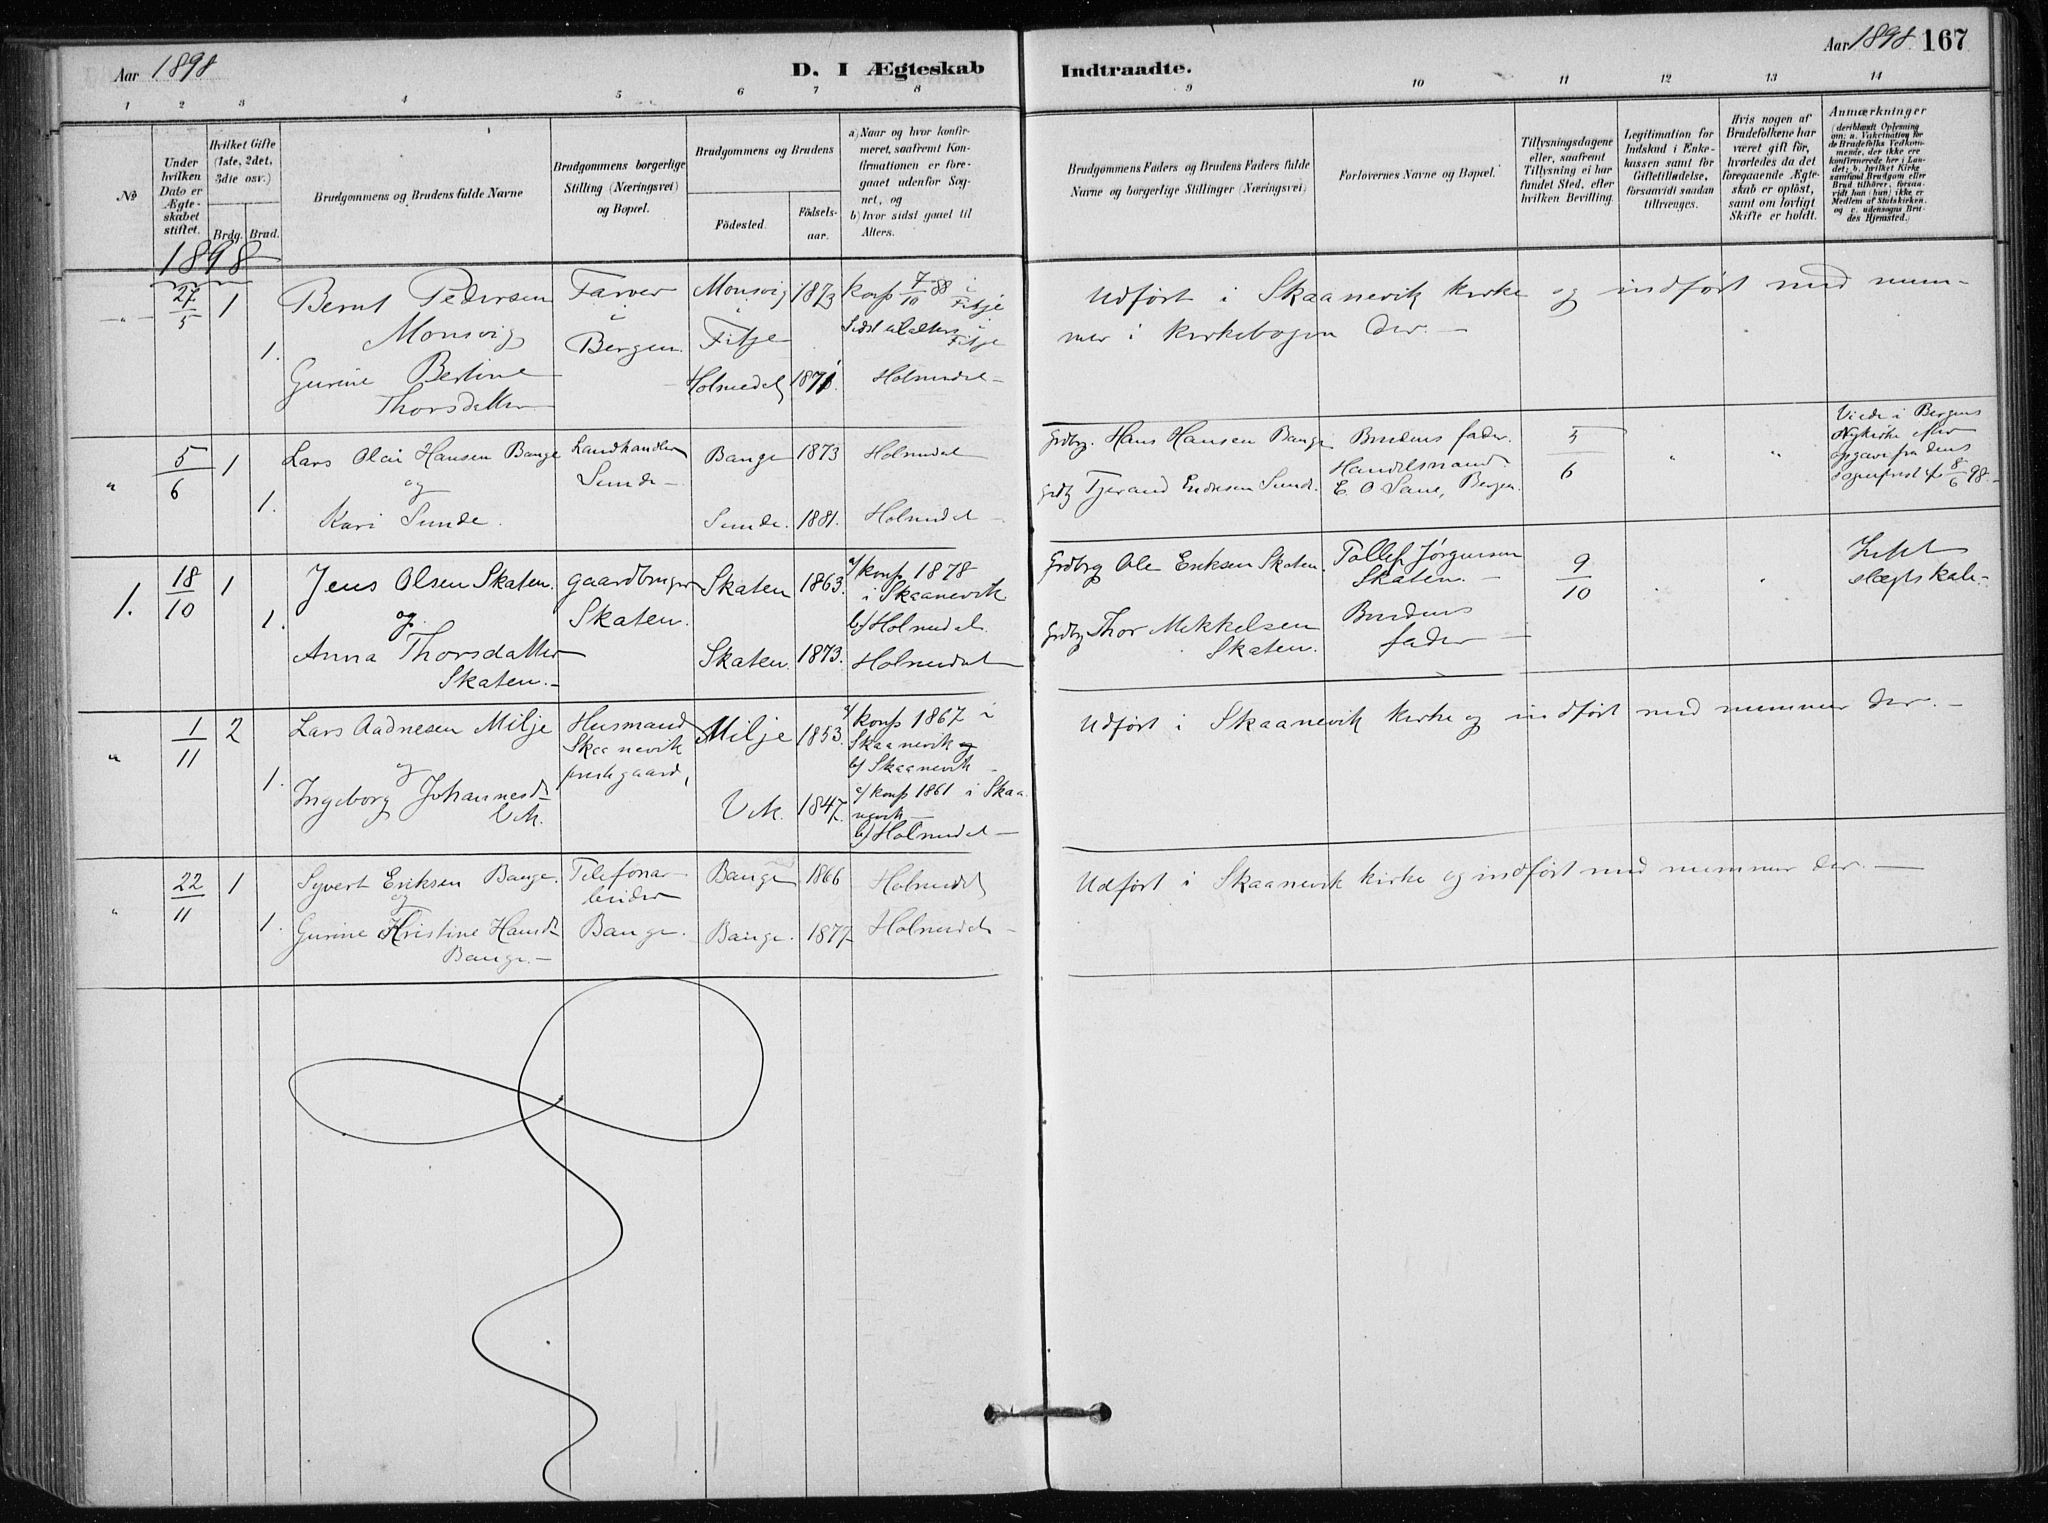 Aar 1898
D. I Ægteskab
Indtraadte.
Aar 1898 167
1 2 3 4 5 6 7 8 9 10 11 12 13 14
No
Under hvilken Dato er Ægteskabet stiftet.
Hvilket Gifte (1ste, 2det, 3die osv.)
Brdg. Brud.
Brudgommens og Brudens fulde Navne
Brudgommens borgerlige Stilling (Næringsvei) og Bopæl.
Brudgommens og Brudens
Fødested.
Fødselsaar.
a) Naar og hvor konfirmeret, saafremt Konfirmationen er foregaaet udenfor Sognet, og
b) hvor sidst gaaet til Alters.
Brudgommens Faders og Brudens Faders fulde Navne og borgerlige Stillinger (Næringsvei)
Forlovernes Navne og Bopæl.
Tillysningsdagene eller, saafremt Tillysning ei har fundet Sted, efter hvilken Bevilling.
Legitimation for Indskud i Enkekassen samt for Giftetilladelse, forsaavidt saadan tiltrænges.
Hvis nogen af Brudefolkene har været gift før, hvorledes da det foregaaende Ægteskab er opløst, samt om lovligt Skifte er holdt.
Anmærkninger
(deriblandt Oplysning om: a. Vakcination for de Brudefolks Vedkommende, der ikke ere konfirmerede her i Landet; b. hvilket Kirkesamfund Brudgom eller Brud tilhører, forsaavidt han (hun) ikke er Medlem af Statskirken, og c. udensogns Brudes Hjemsted.)
1898
-"- 27/5 1 Bernt Pedersen Farver Monsvig 1873 konf 7/10 88 i Fitje
Monsvig i Bergen. i Fitje Sidst til alters i Fitje
1. Gurine Bertine Holmedal 1871. Holmedal -
Thorsdatter
Udført i Skaanevik kirke og indført med num-
mer i kirkebogen der. -
" 5/6 1 Lars Olai Hansen Bauge Landhandler Bauge 1873 Holmedal
og Sunde -
1. Kari Sunde. Sunde. 1881. Holmedal -
Grdbrg. Hans Hansen Bauge Brudens fader. 5/6 " " Viede i Bergens
Nykirke efter
opgave fra dens
sogneprest af 8/6 98. -
Grdbg Tjerand Endresen Sunde. Handelsmand
E. O. Sane, Bergen.
1. 18/10 1 Jens Olsen Skaten. gaardbruger Skaten 1863. a/ konf. 1878
og Skaten. i Skaanevik
b/ Holmedal.
1. Anna Thorsdatter Skaten. 1873. Holmedal
Skaten. -
Grdbrg Ole Eriksen Skaten. Tollef Jørgensen
Skaten. - 9/10 " "
slægtskab. -
Grdbg Thor Mikkelsen Brudens
Skaten. fader -
" 1/11 2 Lars Aadnesen Milje Husmand Milje 1853. a/ konf 1867 i
og Skaanevik Skaanevik og
prestegaard, b/ Skaanevik -
1. Ingeborg Johannesdt. Vik. 1847. a/ konf 1861 i Skaa-
Vik. nevik -
b/ Holmedal -
Udført i Skaanevik kirke og indført med nummer der. -
" 22/11 1 Syvert Eriksen Bauge. Telefonar- Bauge 1866 Holmedal
og beider
1. Gurine Kristine Hansdt. Bauge. Bauge. 1877 Holmedal -
Bauge. -
Udført i Skaanevik kirke og indført med nummer der. -